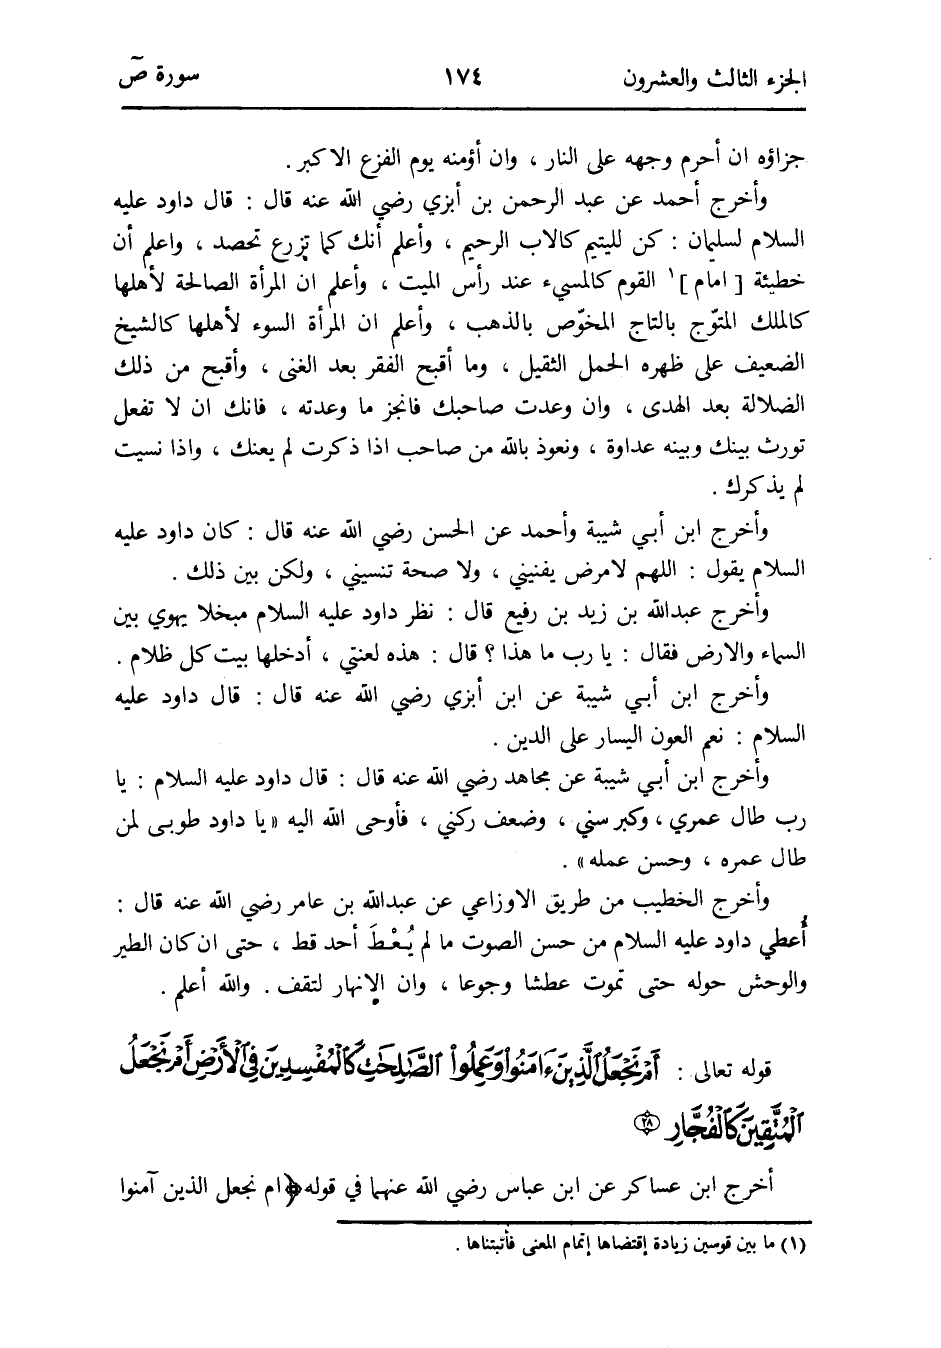 الجزء الثالث والعشرون ١٧٤ سورة صٓ
جزاؤه ان أحرم وجهه على النار ، وان أؤمنه يوم الفزع الاكبر .
وأخرج أحمد عن عبد الرحمن بن أبزي رضي الله عنه قال : قال داود عليه
السلام لسليمان : كن لليتيم كالاب الرحيم ، وأعلم أنك كما تزرع تحصد ، واعلم أن
خطيئة [ امام ]١ القوم كالمسيء عند رأس الميت ، وأعلم ان المرأة الصالحة لأهلها
كالملك المتوّج بالتاج المخوّص بالذهب ، وأعلم ان المرأة السوء لأهلها كالشيخ
الضعيف على ظهره الحمل الثقيل ، وما أقبح الفقر بعد الغنى ، وأقبح من ذلك
الضلالة بعد الهدى ، وان وعدت صاحبك فانجز ما وعدته ، فانك ان لا تفعل
تورث بينك وبينه عداوة ، ونعوذ بالله من صاحب اذا ذكرت لم يعنك ، واذا نسيت
لم يذكرك .
وأخرج ابن أبي شيبة وأحمد عن الحسن رضي الله عنه قال : كان داود عليه
السلام يقول : اللهم لامرض يفنيني ، ولا صحة تنسيني ، ولكن بين ذلك .
وأخرج عبدالله بن زيد بن رفيع قال : نظر داود عليه السلام مبخلا يهوي بين
السماء والارض فقال : يا رب ما هذا ؟ قال : هذه لعنتي ، أدخلها بيت كل ظلام .
وأخرج ابن أبي شيبة عن ابن أبزي رضي الله عنه قال : قال داود عليه
السلام : نعم العون اليسار على الدين .
وأخرج ابن أبي شيبة عن مجاهد رضي الله عنه قال : قال داود عليه السلام : يا
رب طال عمري ، وكبر سني ، وضعف ركني ، فأوحى الله اليه «يا داود طوبى لمن
طال عمره ، وحسن عمله» .
وأخرج الخطيب من طريق الاوزاعي عن عبدالله بن عامر رضي الله عنه قال :
أُعطي داود عليه السلام من حسن الصوت ما لم يُعْطَ أحد قط ، حتى ان كان الطير
والوحش حوله حتى تموت عطشا وجوعا ، وان الإنهار لتقف . والله أعلم .
قوله تعالى : أَمْ نَجْعَلُ الَّذِينَ ءَامَنُوا۟ وَعَمِلُوا۟ الصَّٰلِحَٰتِ كَالْمُفْسِدِينَ فِي الْأَرْضِ أَمْ نَجْعَلُ
الْمُتَّقِينَ كَالْفُجَّارِ ٢٨
أخرج ابن عساكر عن ابن عباس رضي الله عنهما في قوله ﴿ام نجعل الذين آمنوا
(١) ما بين قوسين زيادة إقتضاها إتمام المعنى فأثبتناها .